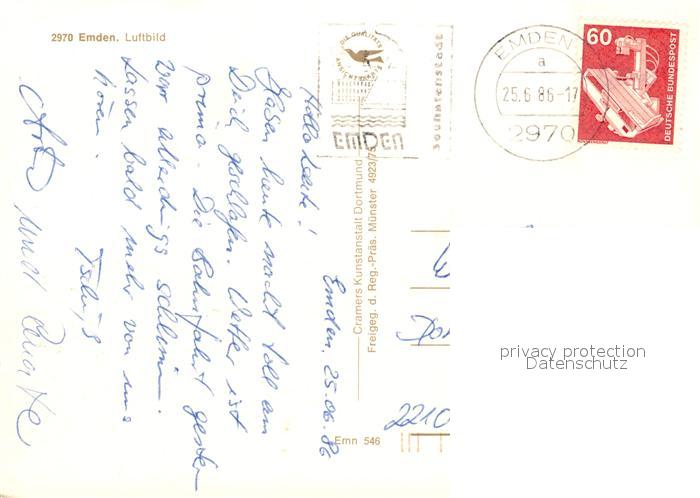 2970 Emden. Luftbild
DIE QUALITÄTS
ANSICHTSKARTE
EMDEN
Seehafenstadt
EMDEN
a
25.6.86-17
2970
60
DEUTSCHE BUNDESPOST
Cramers Kunstanstalt Dortmund
Freigeg. d. Reg.-Präs. Münster 4923/75
Emden, 25.06.86
Hallo Leute!
Haben heute nacht toll am
Deich geschlafen. Wetter ist
prima. Die Bahnfahrt gestern
war allerdings schlimm.
Lassen bald mehr von uns
hören.
Tschüs
und
2210
Emn 546
privacy protection
Datenschutz